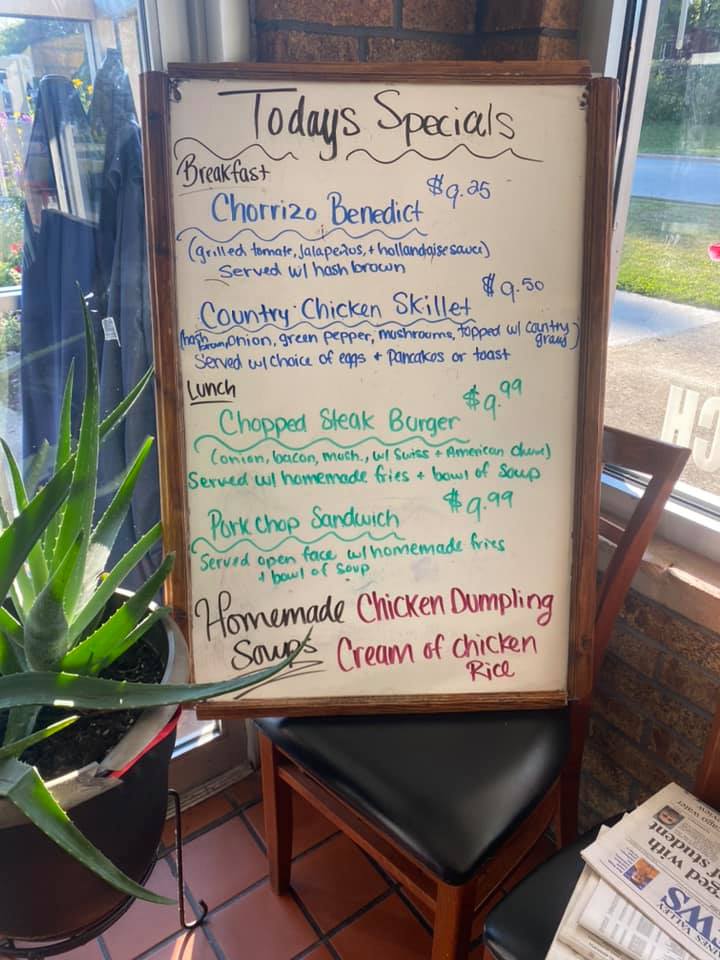 Todays Specials
Breakfast
$9.25
Chorrizo Benedict
(grilled tomato, Jalapeños, + hollandaise sauce)
Served w/ hash brown
$9.50
Country Chicken Skillet
(hash brown, onion, green pepper, mushrooms, topped w/ country gravy)
Served w/ choice of eggs + Pancakes or toast
Lunch
$9.99
Chopped Steak Burger
(onion, bacon, mush., w/ Swiss + American Cheese)
Served w/ homemade fries + bowl of Soup
$9.99
Pork chop Sandwich
Served open face w/ homemade fries
+ bowl of soup
Homemade Chicken Dumpling
Soups Cream of chicken
Rice
of student
ged with
VALLEY